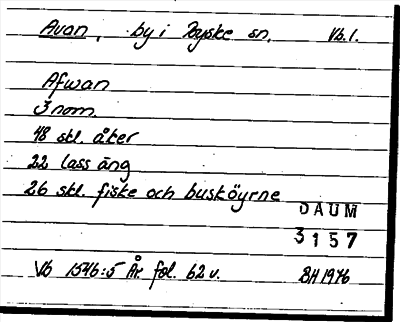 Avan, by i Ryske sn. Vb. l.
Afwan
3 nom.
48 skl. åker
22 lass äng
26 skl. fiske och busköyrne
DAUM
3157
Vb 1546:5 År fol. 62 v. BH 1976